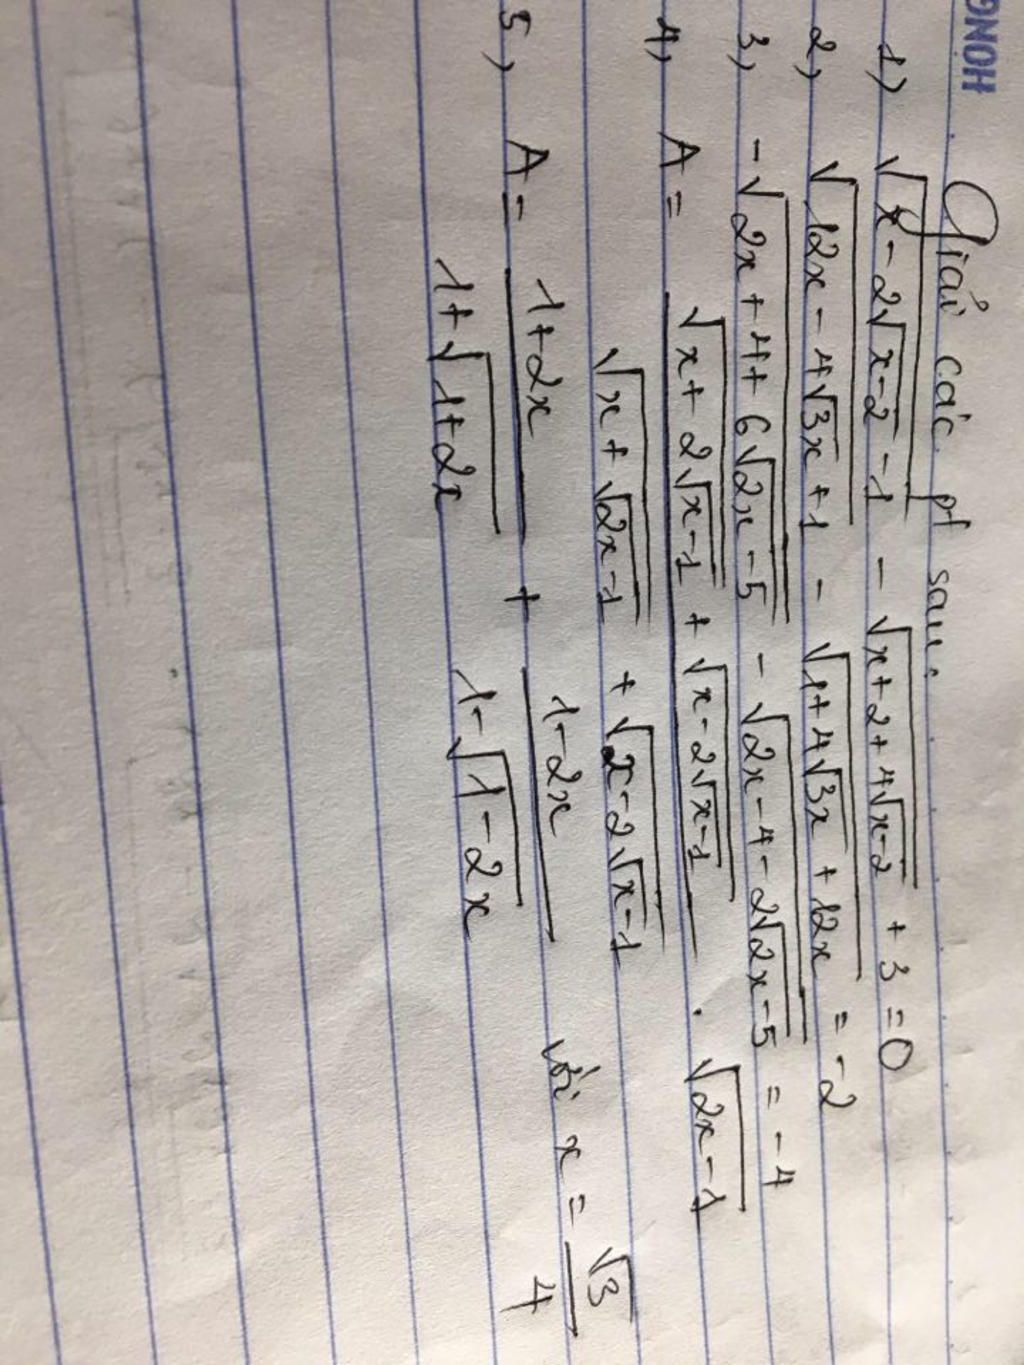 HONG
Giải các pt sau:
1) √(x - 2√(x-2) - 1) - √(x+2+4√(x-2)) + 3 = 0
2, √(12x - 4√(3x) + 1) - √(1 + 4√(3x) + 12x) = -2
3, -√(2x + 4 + 6√(2x-5)) - √(2x - 4 - 2√(2x-5)) = -4
4, A = (√(x + 2√(x-1)) + √(x - 2√(x-1))) / (√(x + √(2x-1)) + √(x - 2√(x-1))) . √(2x-1)
5, A = (1+2x) / (1+√(1+2x)) + (1-2x) / (1-√(1-2x)) với x = √3 / 4